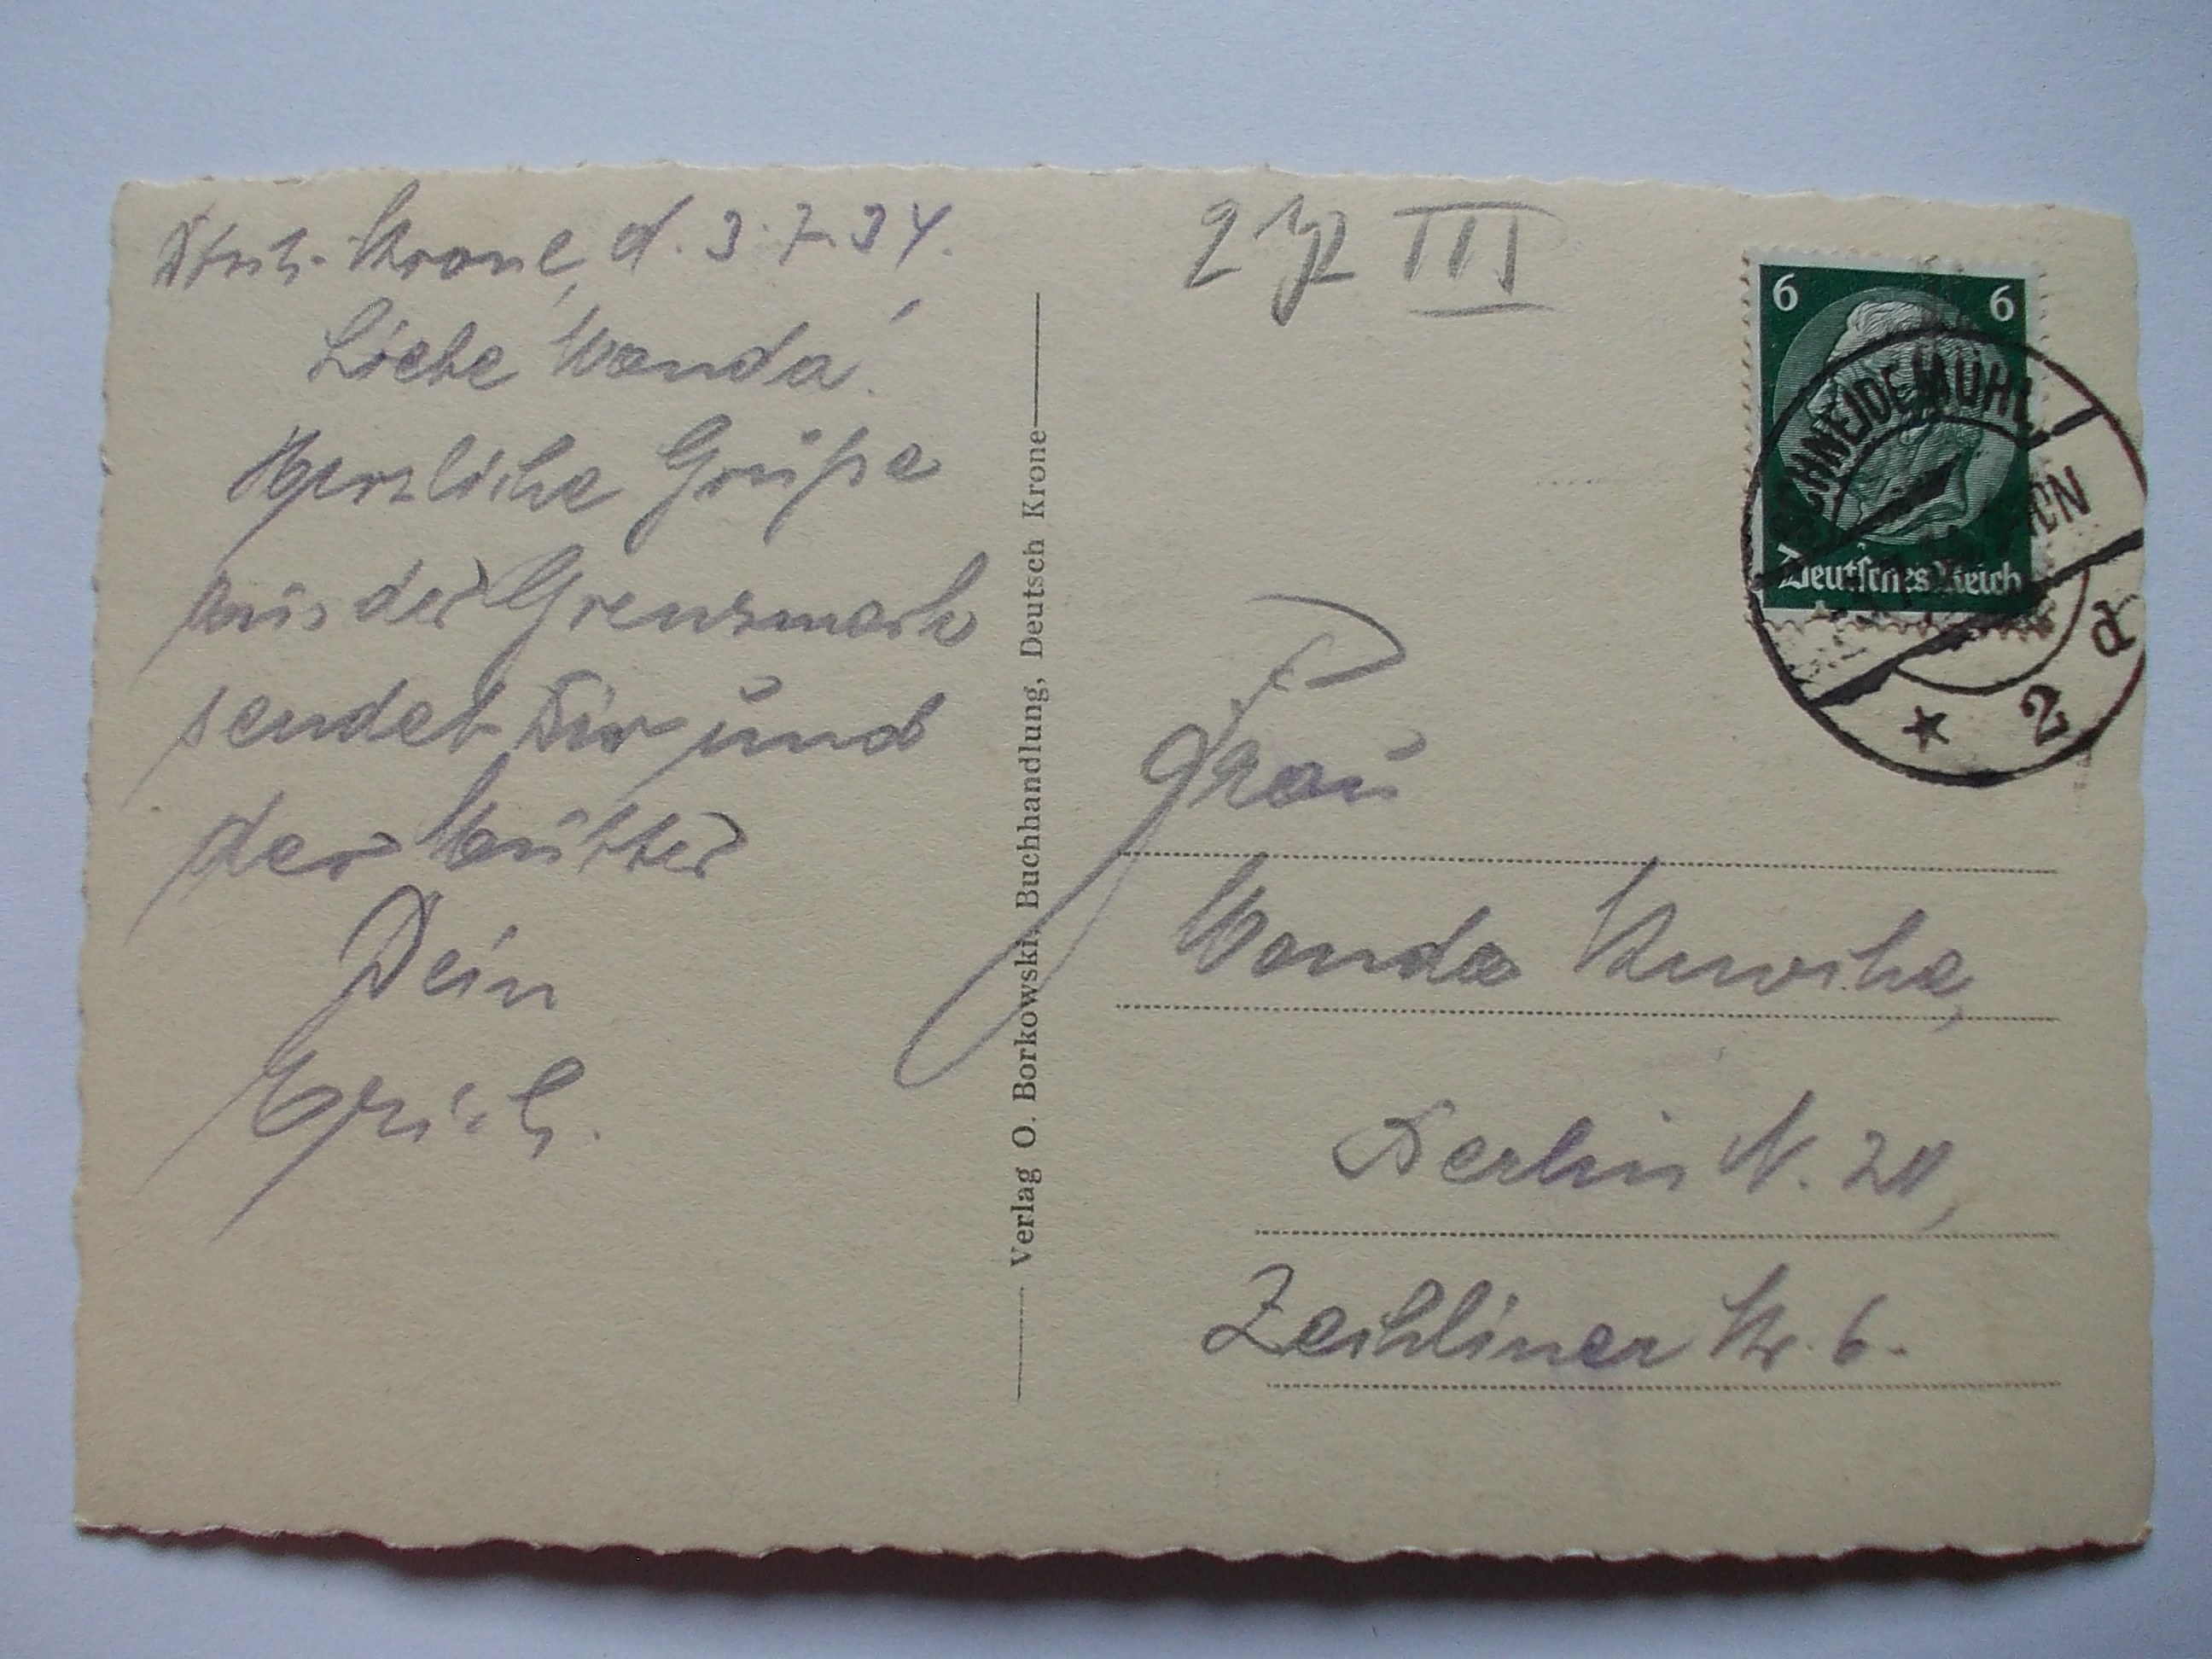 Dtsch.-Krone, d. 3.7.34.
Liebe Wanda!
Herzliche Grüße
aus der Grenzmark
sendet Dir und
der Mutter
Dein
Erich.
Verlag O. Borkowski, Buchhandlung, Deutsch Krone
III
6 6
Deutsches Reich
SCHNEIDEMÜHL
* 2 d
Frau
Wanda
Berlin N. 20,
Zechliner Str. 6.